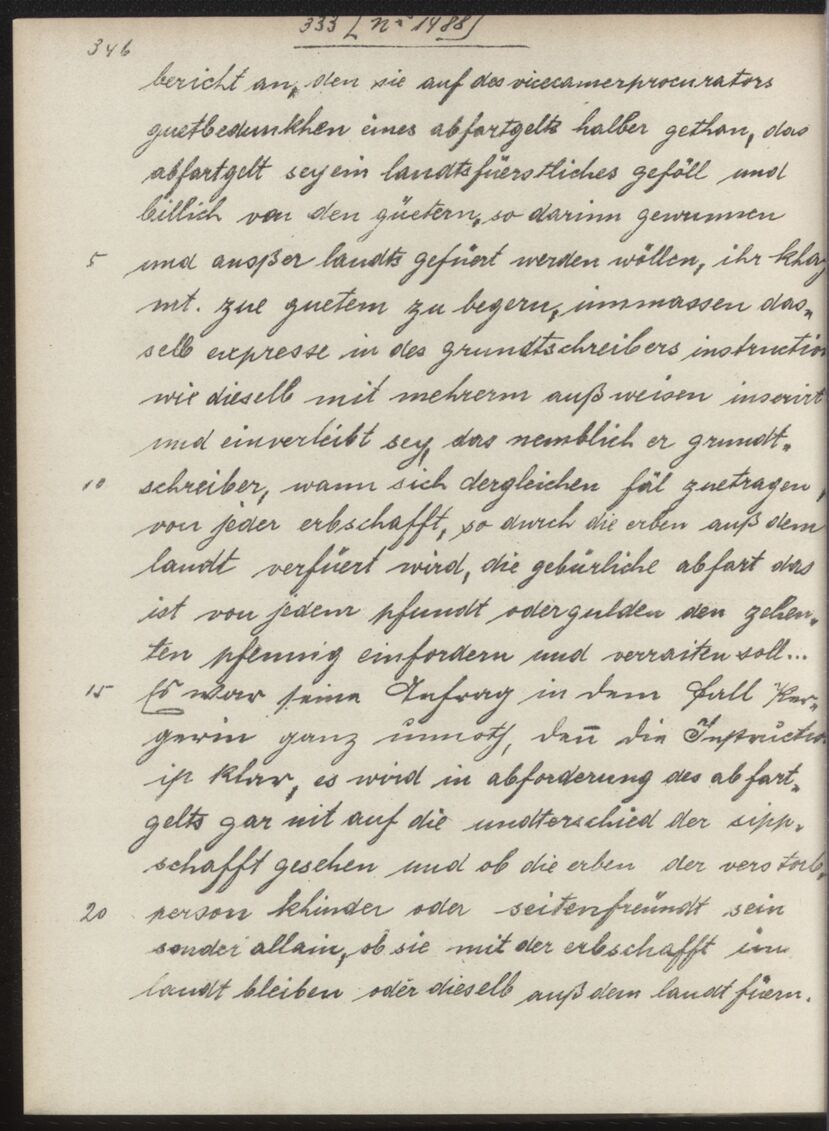 333 [Nr 1488]
346
bericht an, den sie auf des vicecamerprocurators
guetbedunkhen eines abfartgelts halber gethan, das
abfartgelt sey ein landtsfüerstliches geföll und
billich von den güetern, so darinn gewunnen
5 und ausßer landts gefüert werden wöllen, ihr khay
mt. zue guetem zu begern, inmassen das„
selb expresse in des grundtschreibers instruction
wie dieselb mit mehrerm außweisen inserirt
und einverleibt sey, das nemblich er grundt„
10 schreiber, wann sich dergleichen fäl zuetragen,
von jeder erbschafft, so durch die erben auß dem
landt verfüert wird, die gebürliche abfart das
ist von jedem pfundt oder gulden den zehen„
ten pfennig einfordern und verraiten soll...
15 Es war seine Anfrag in dem fall Ker„
gerin ganz unnoth, den̄ die Instructio
ist klar, es wird in abforderung des abfart„
gelts gar nit auf die undterschied der sipp„
schafft gesehen und ob die erben der verstorb„
20 person khinder oder seitenfreündt sein
sonder allain, ob sie mit der erbschafft im
landt bleiben oder dieselb auß dem landt füern.